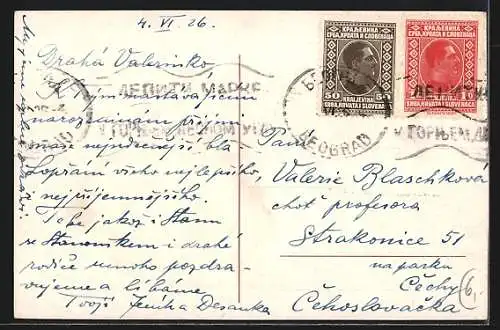 4. VI. 26.
Drahá Valerinko
narozeninám přijmi
moje nejvroucnější bla
hopřání všeho nejlepšího
i nejpříjemnějšího.
Tobě jakož i
se Stanouškem i drahé
rodiče mnoho pozdra-
vujeme a líbáme
Tvoji Desanka
КРАЉЕВИНА
СРБА, ХРВАТА И СЛОВЕНАЦА
50 50
KRALJEVINA
SRBA, HRVATA I SLOVENACA
КРАЉЕВИНА
СРБА, ХРВАТА И СЛОВЕНАЦА
1
KRALJEVINA
SRBA, HRVATA I SLOVENACA
БЕОГРАД
BEOGRAD
ЛЕПИТИ МАРКЕ
У ГОРЊЕМ ДЕСНОМ УГЛУ
Paní
Valerie Blaschkova
choť profesora
Strakonice 51
na parku
Čechy
Čehoslovačka